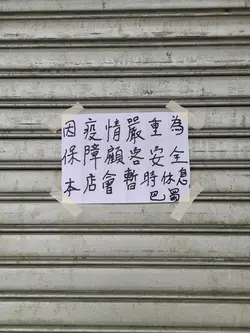 因疫情嚴重為
保障顧客安全
本店會暫時休息
巴蜀